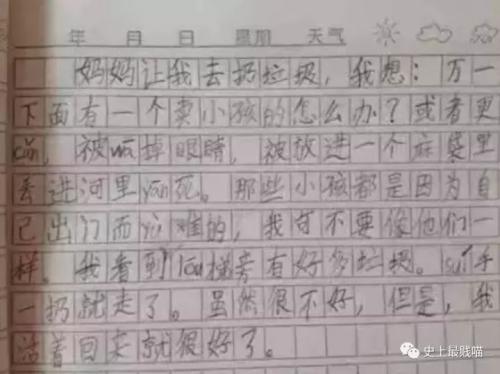 年 月 日 星期 天气
妈妈让我去扔垃圾，我想：万一
下面有一个卖小孩的怎么办？或者更
cǎn，被wā掉眼睛，被放进一个麻袋里
丢进河里yān死。那些小孩都是因为自
己出门而yù难的，我可不要像他们一
样。我看到lóu梯旁有好多垃圾。suí手
一扔就走了。虽然很不好，但是，我
活着回来就很好了。
史上最贱喵